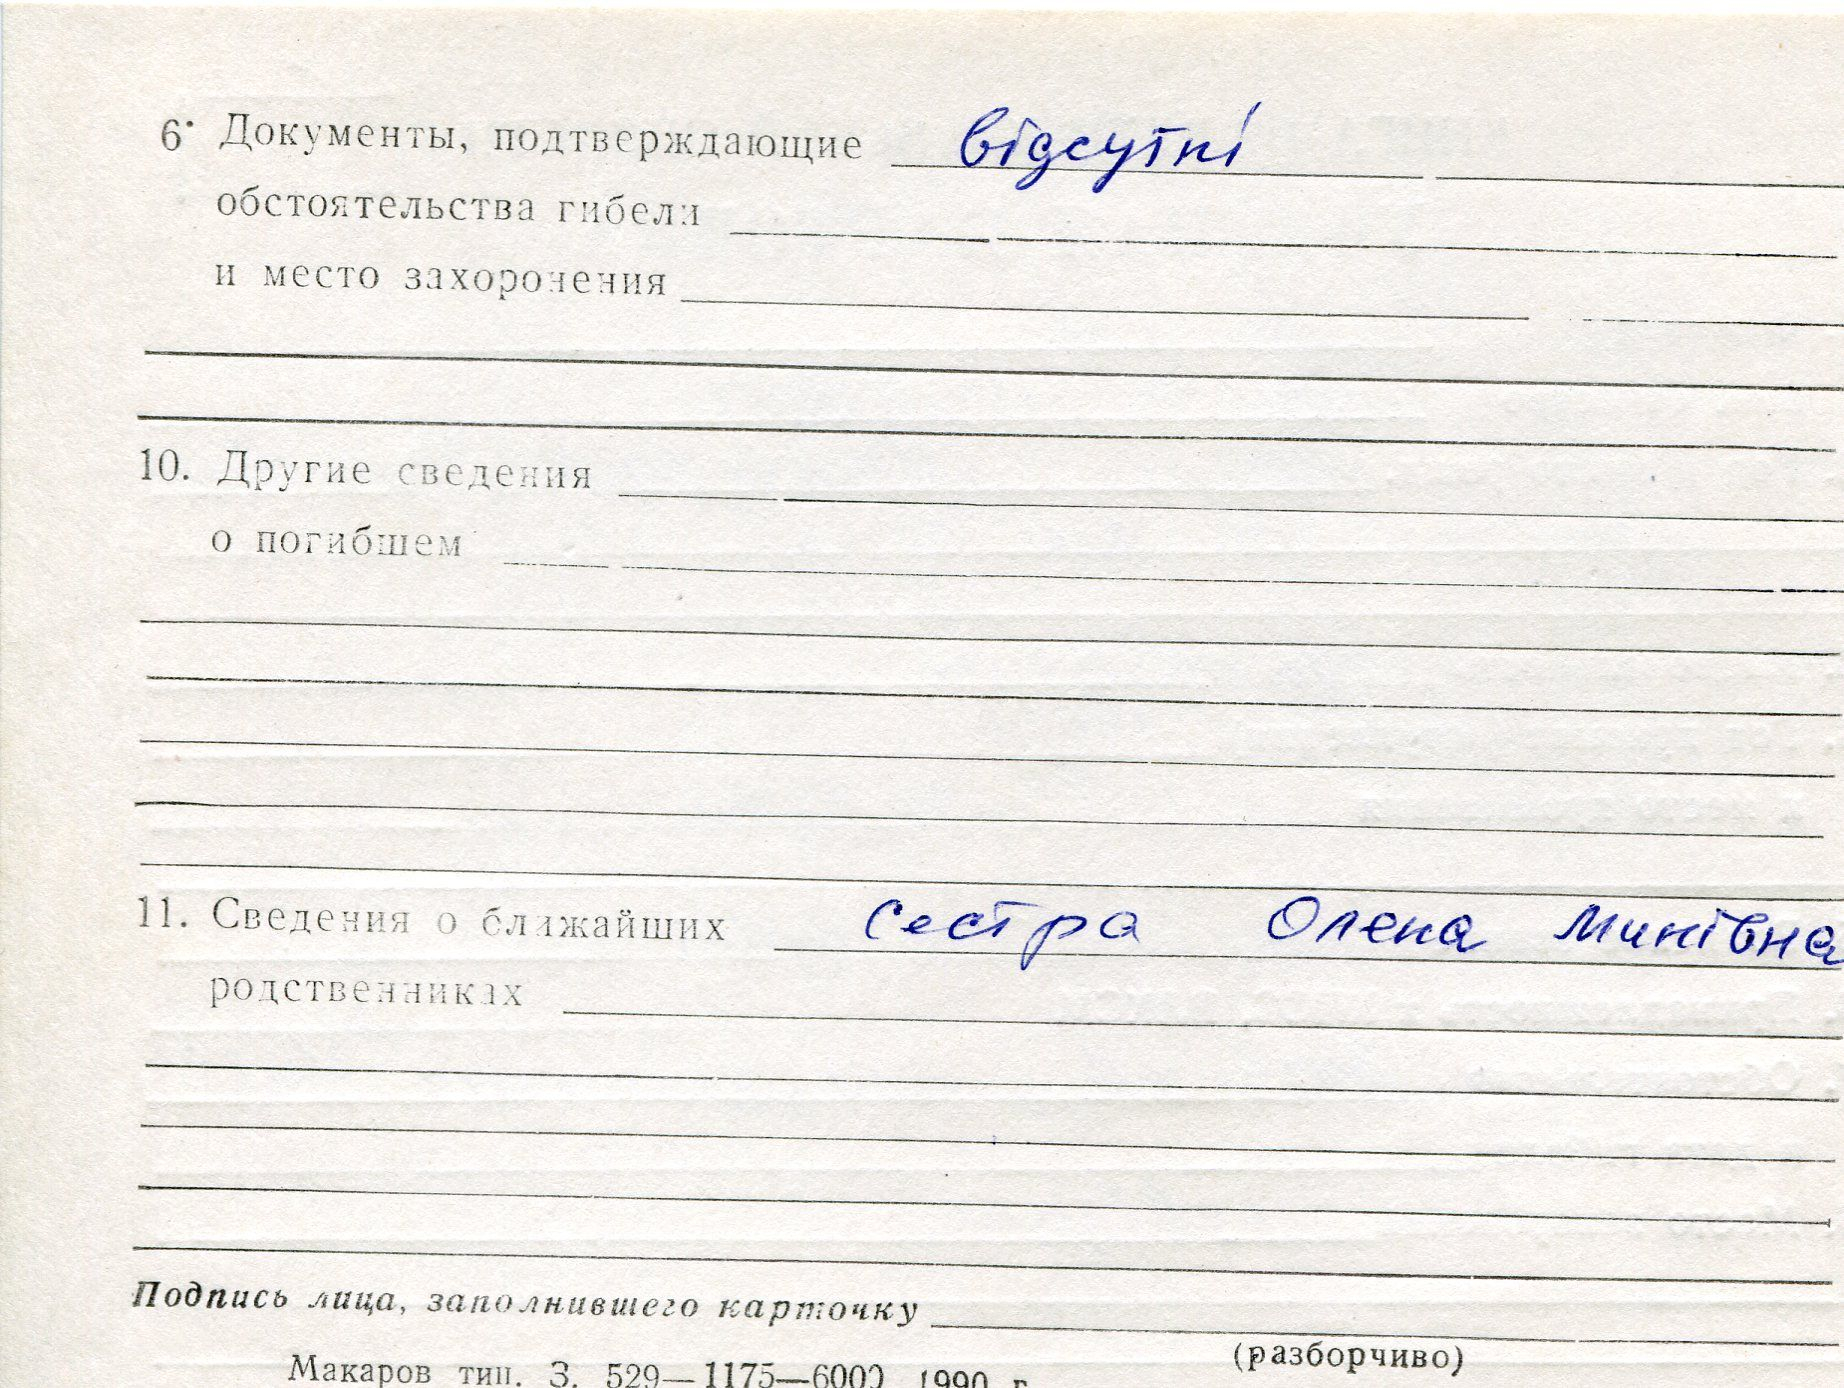 6. Документы, подтверждающие відсутні
обстоятельства гибели
и место захоронения
10. Другие сведения
о погибшем
11. Сведения о ближайших сестра Олена Минівна
родственниках
Подпись лица, заполнившего карточку
(разборчиво)
Макаров тип. З. 529—1175—6000 1990 г.